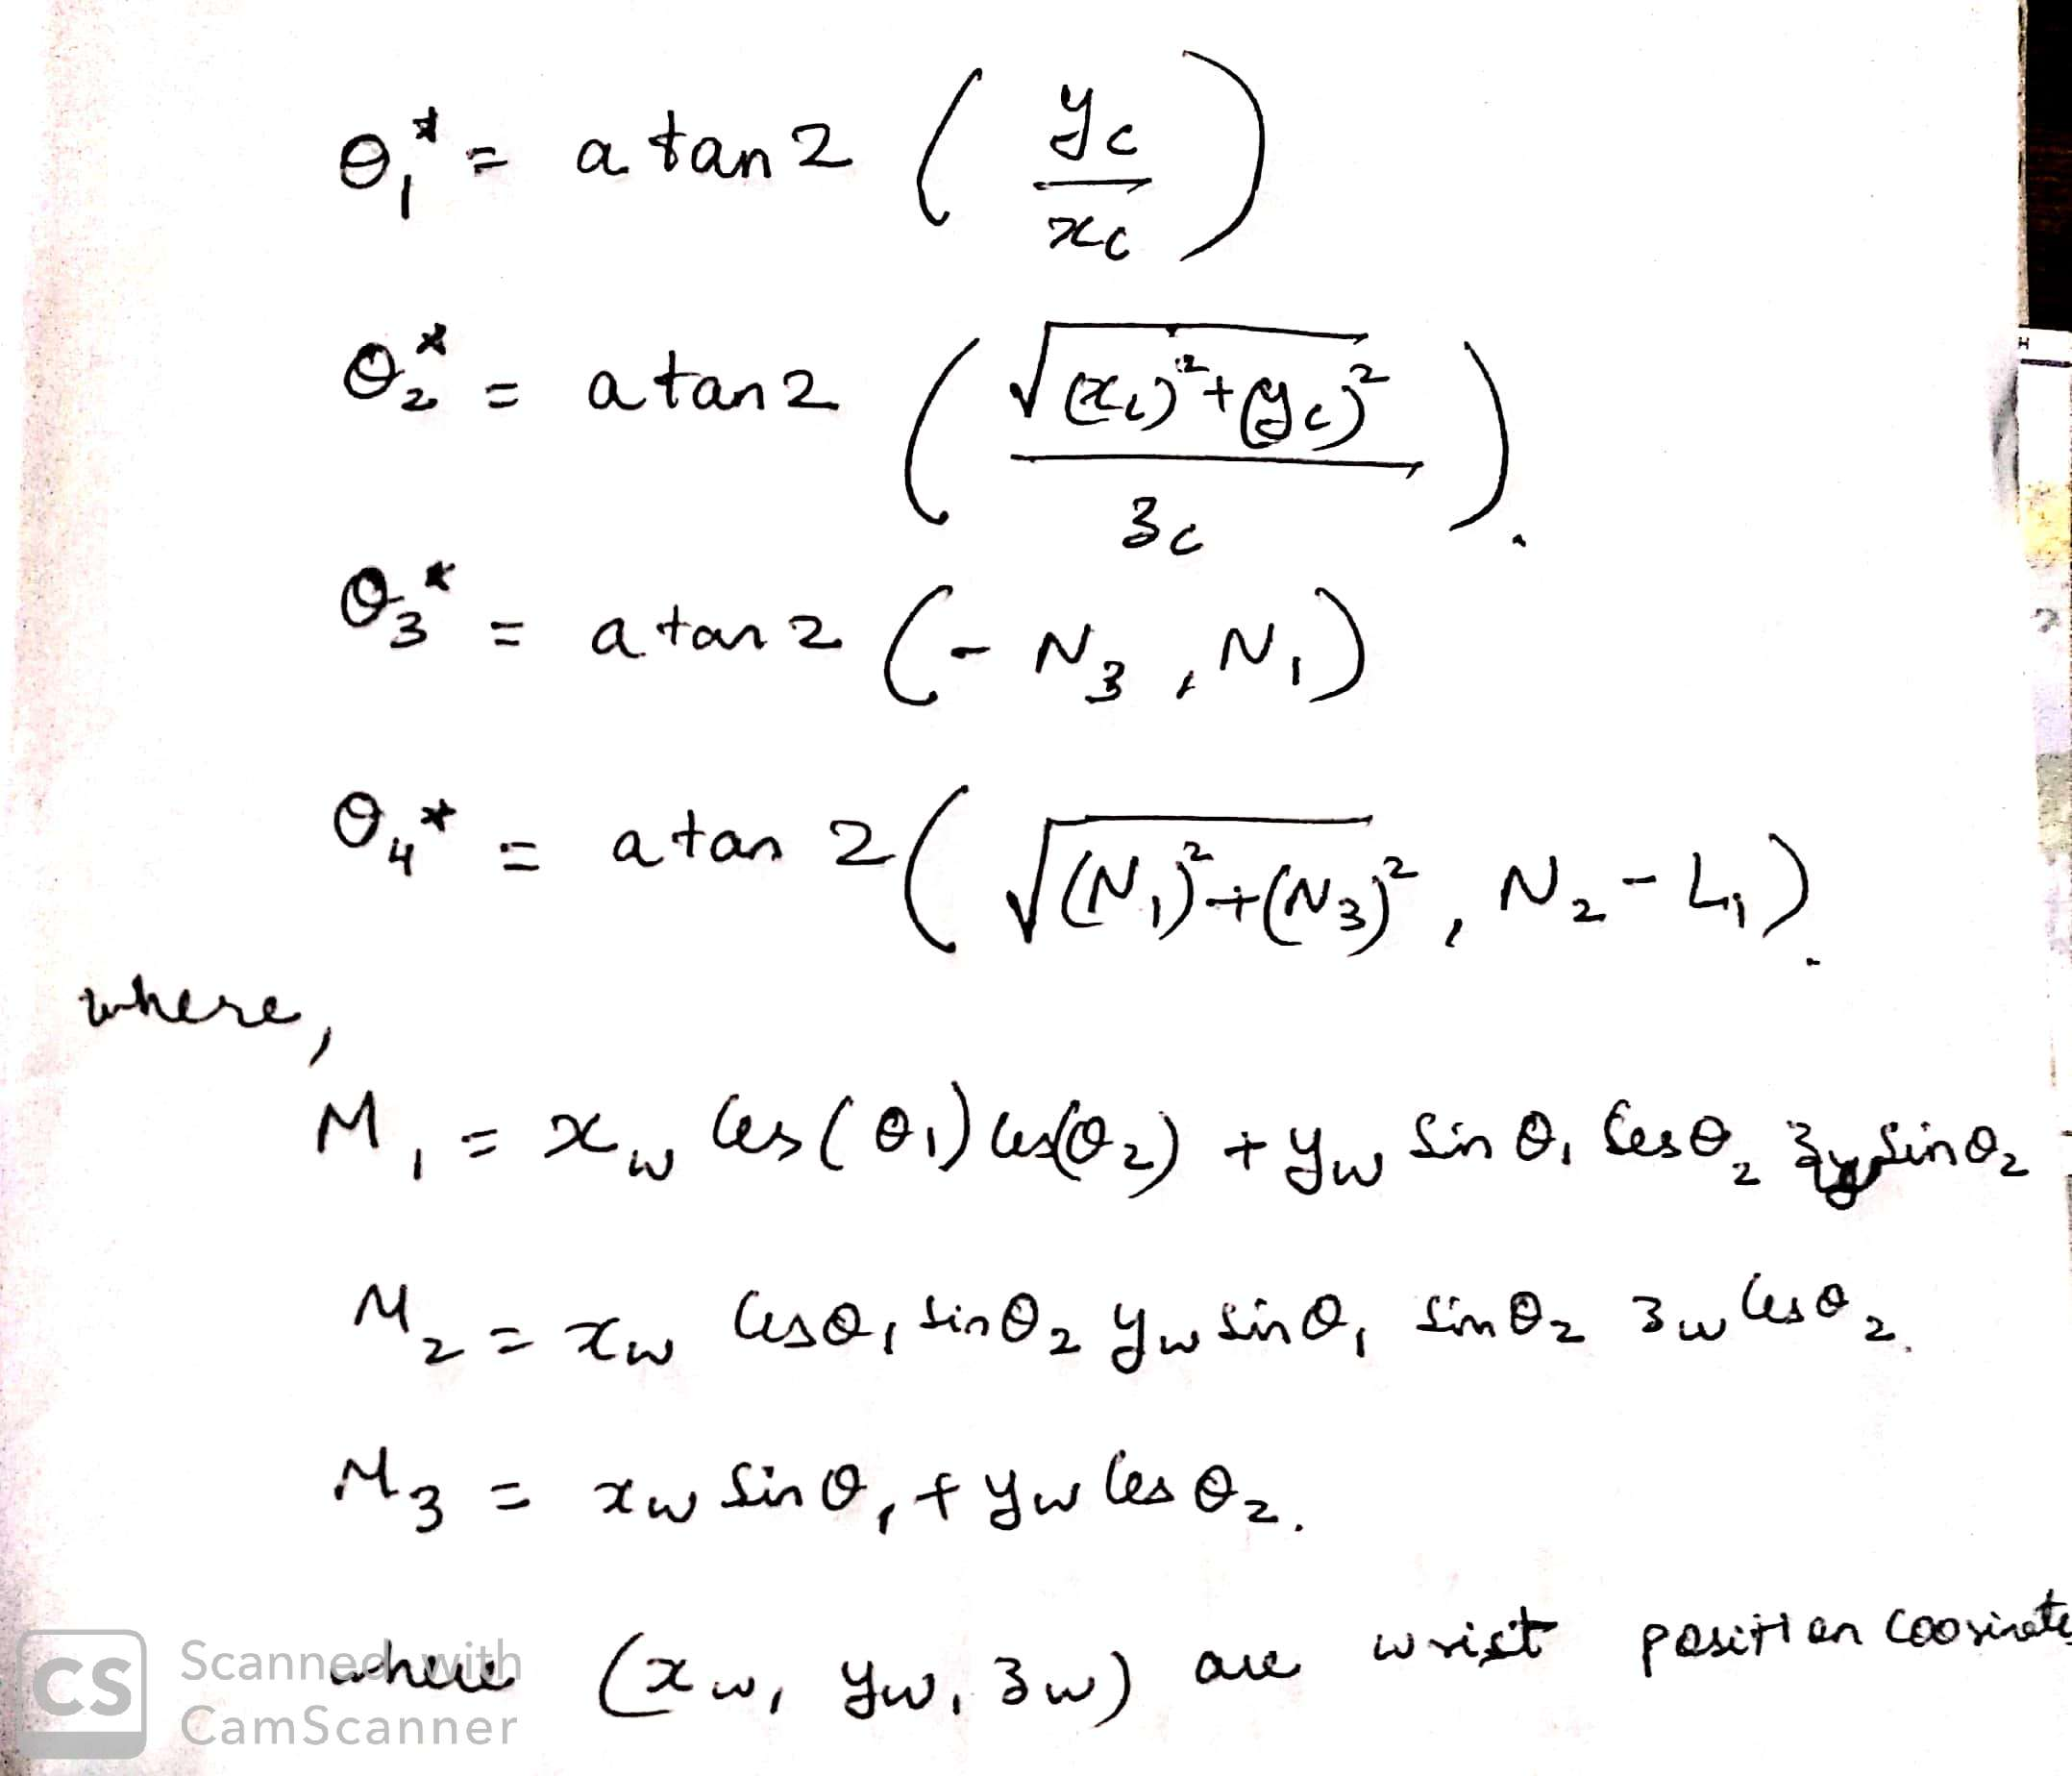 θ₁* = a tan 2 ( yc / xc )
θ₂* = a tan 2 ( √((xc)² + (yc)²) / zc ).
θ₃* = a tan 2 (- N₃ , N₁)
θ₄* = a tan 2 ( √((N₁)² + (N₃)²) , N₂ - L₁ ).
where,
M₁ = xw Cos(θ₁) Cos(θ₂) + yw Sin θ₁ Cos θ₂ zw Sin θ₂
M₂ = xw Cos θ₁ Sin θ₂ yw Sin θ₁ Sin θ₂ zw Cos θ₂.
M₃ = xw Sin θ₁ + yw Cos θ₂.
where (xw, yw, zw) are wrist position coorinate
CS Scanned with
CamScanner